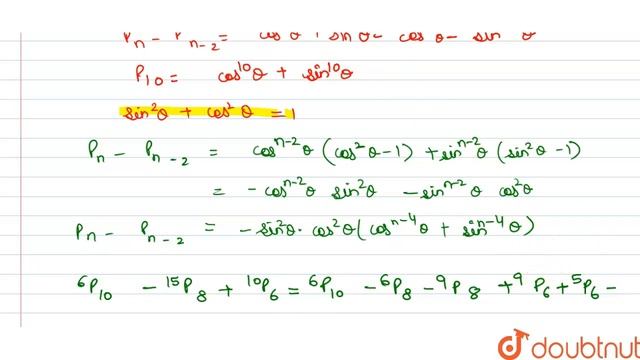 P₁₀ = cos¹⁰θ + sin¹⁰θ
sin²θ + cos²θ = 1
Pₙ − Pₙ₋₂ = cosⁿ⁻²θ (cos²θ−1) + sinⁿ⁻²θ (sin²θ −1)
= − cosⁿ⁻²θ sin²θ − sinⁿ⁻²θ cos²θ
Pₙ − Pₙ₋₂ = − sin²θ · cos²θ (cosⁿ⁻⁴θ + sinⁿ⁻⁴θ)
⁶P₁₀ − ¹⁵P₈ + ¹⁰P₆ = ⁶P₁₀ − ⁶P₈ − ⁹P₈ + ⁹P₆ + ⁵P₆ −
doubtnut